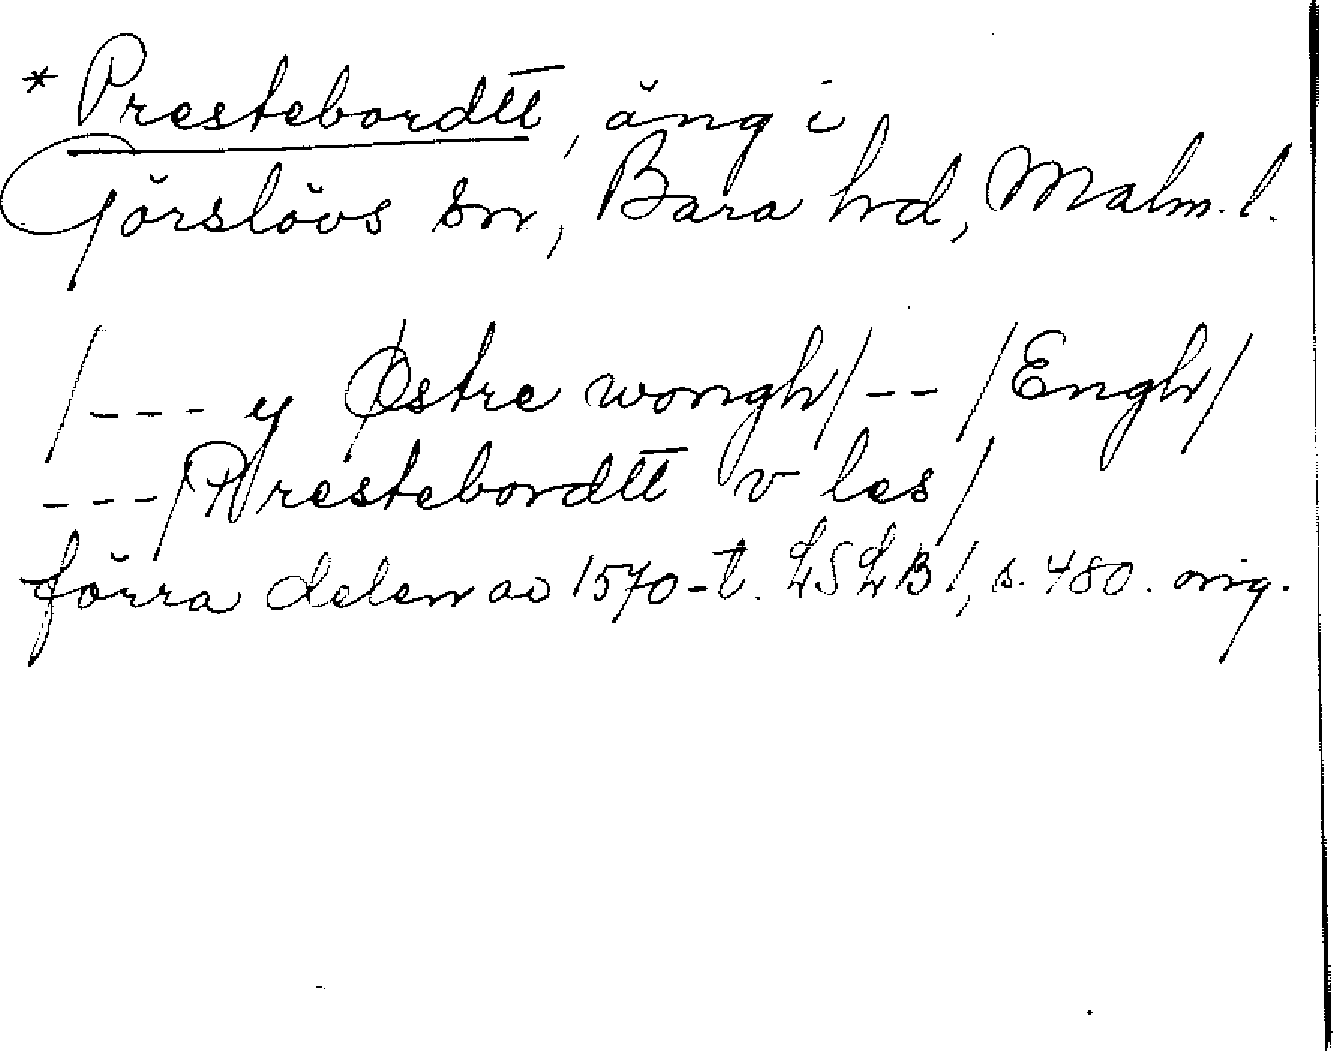 * Prestebordtt, äng i
Görslövs sn, Bara hd, Malm. l.
/--- y Østre wongh/-- /Engh/
---/Prestebordtt v les/
förra delen av 1570-t. LSLB 1, s. 480. orig.